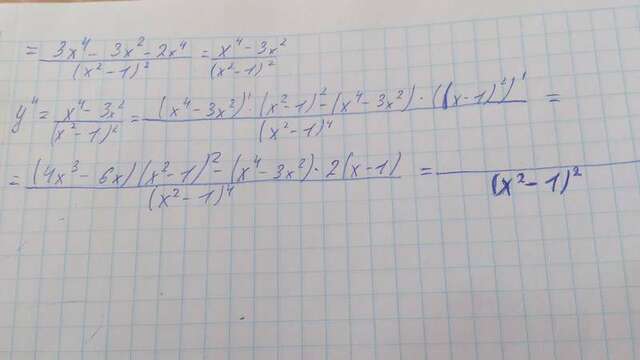 = (3x⁴ - 3x² - 2x⁴)/(x² - 1)² = (x⁴ - 3x²)/(x² - 1)²
y" = (x⁴ - 3x²)/(x² - 1)² = ((x⁴ - 3x²)' · (x² - 1)² - (x⁴ - 3x²) · ((x - 1)²)')/(x² - 1)⁴ =
= ((4x³ - 6x)(x² - 1)² - (x⁴ - 3x²) · 2(x - 1))/(x² - 1)⁴ = /(x² - 1)²